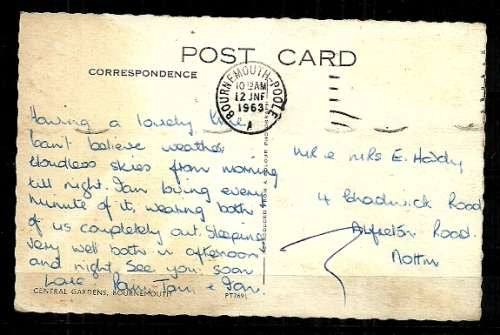 POST CARD
CORRESPONDENCE
BOURNEMOUTH-POOLE
10 15AM
12 JNE
1963
A
Having a lovely time
Can't believe weather
Cloudless skies from morning
till night. Ian loving every
minute of it, wearing both
of us completely out. Sleeping
very well both in afternoon
and night. See you soon
Love Pam, Tom & Ian.
Mr & Mrs E. Hardy
4 Chadwick Road
Alfreton Road.
Nottm
CENTRAL GARDENS, BOURNEMOUTH
PT7691